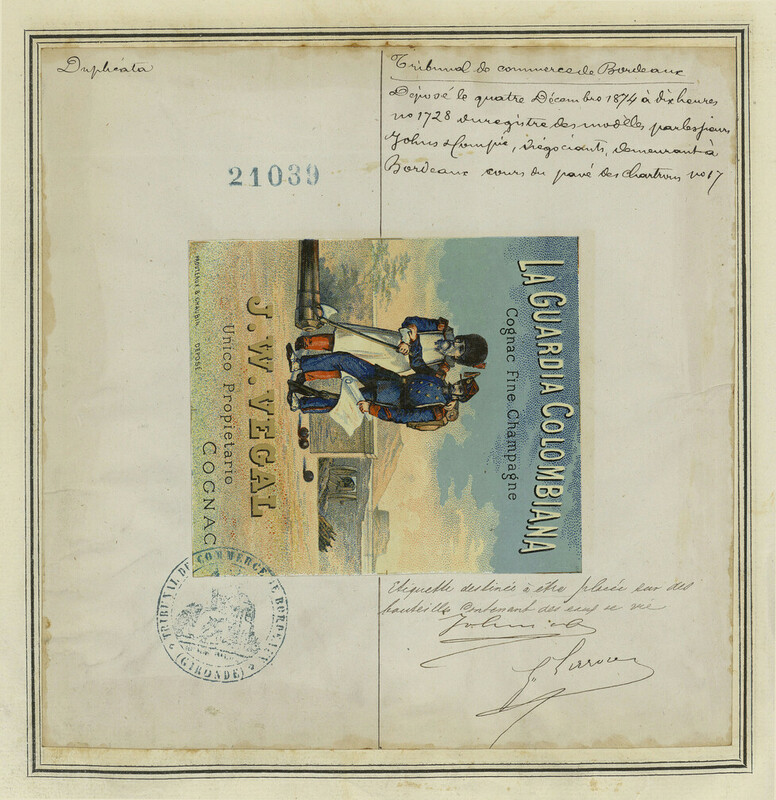 Duplicata
Tribunal de commerce de Bordeaux
Déposé le quatre Décembre 1874 à dix heures
no 1728 du registre des modèles par les sieurs
Johns & Compie, négociants, demeurant à
Bordeaux cours du pavé des Chartrons no 17
21039
LA GUARDIA COLOMBIANA
Cognac Fine Champagne
J. W. VEGAL
Unico Propietario
COGNAC
DÉPOSÉ
TRIBUNAL DE COMMERCE DE BORDEAUX
(GIRONDE)
Etiquette destinée à être placée sur des
bouteilles contenant des eaux de vie